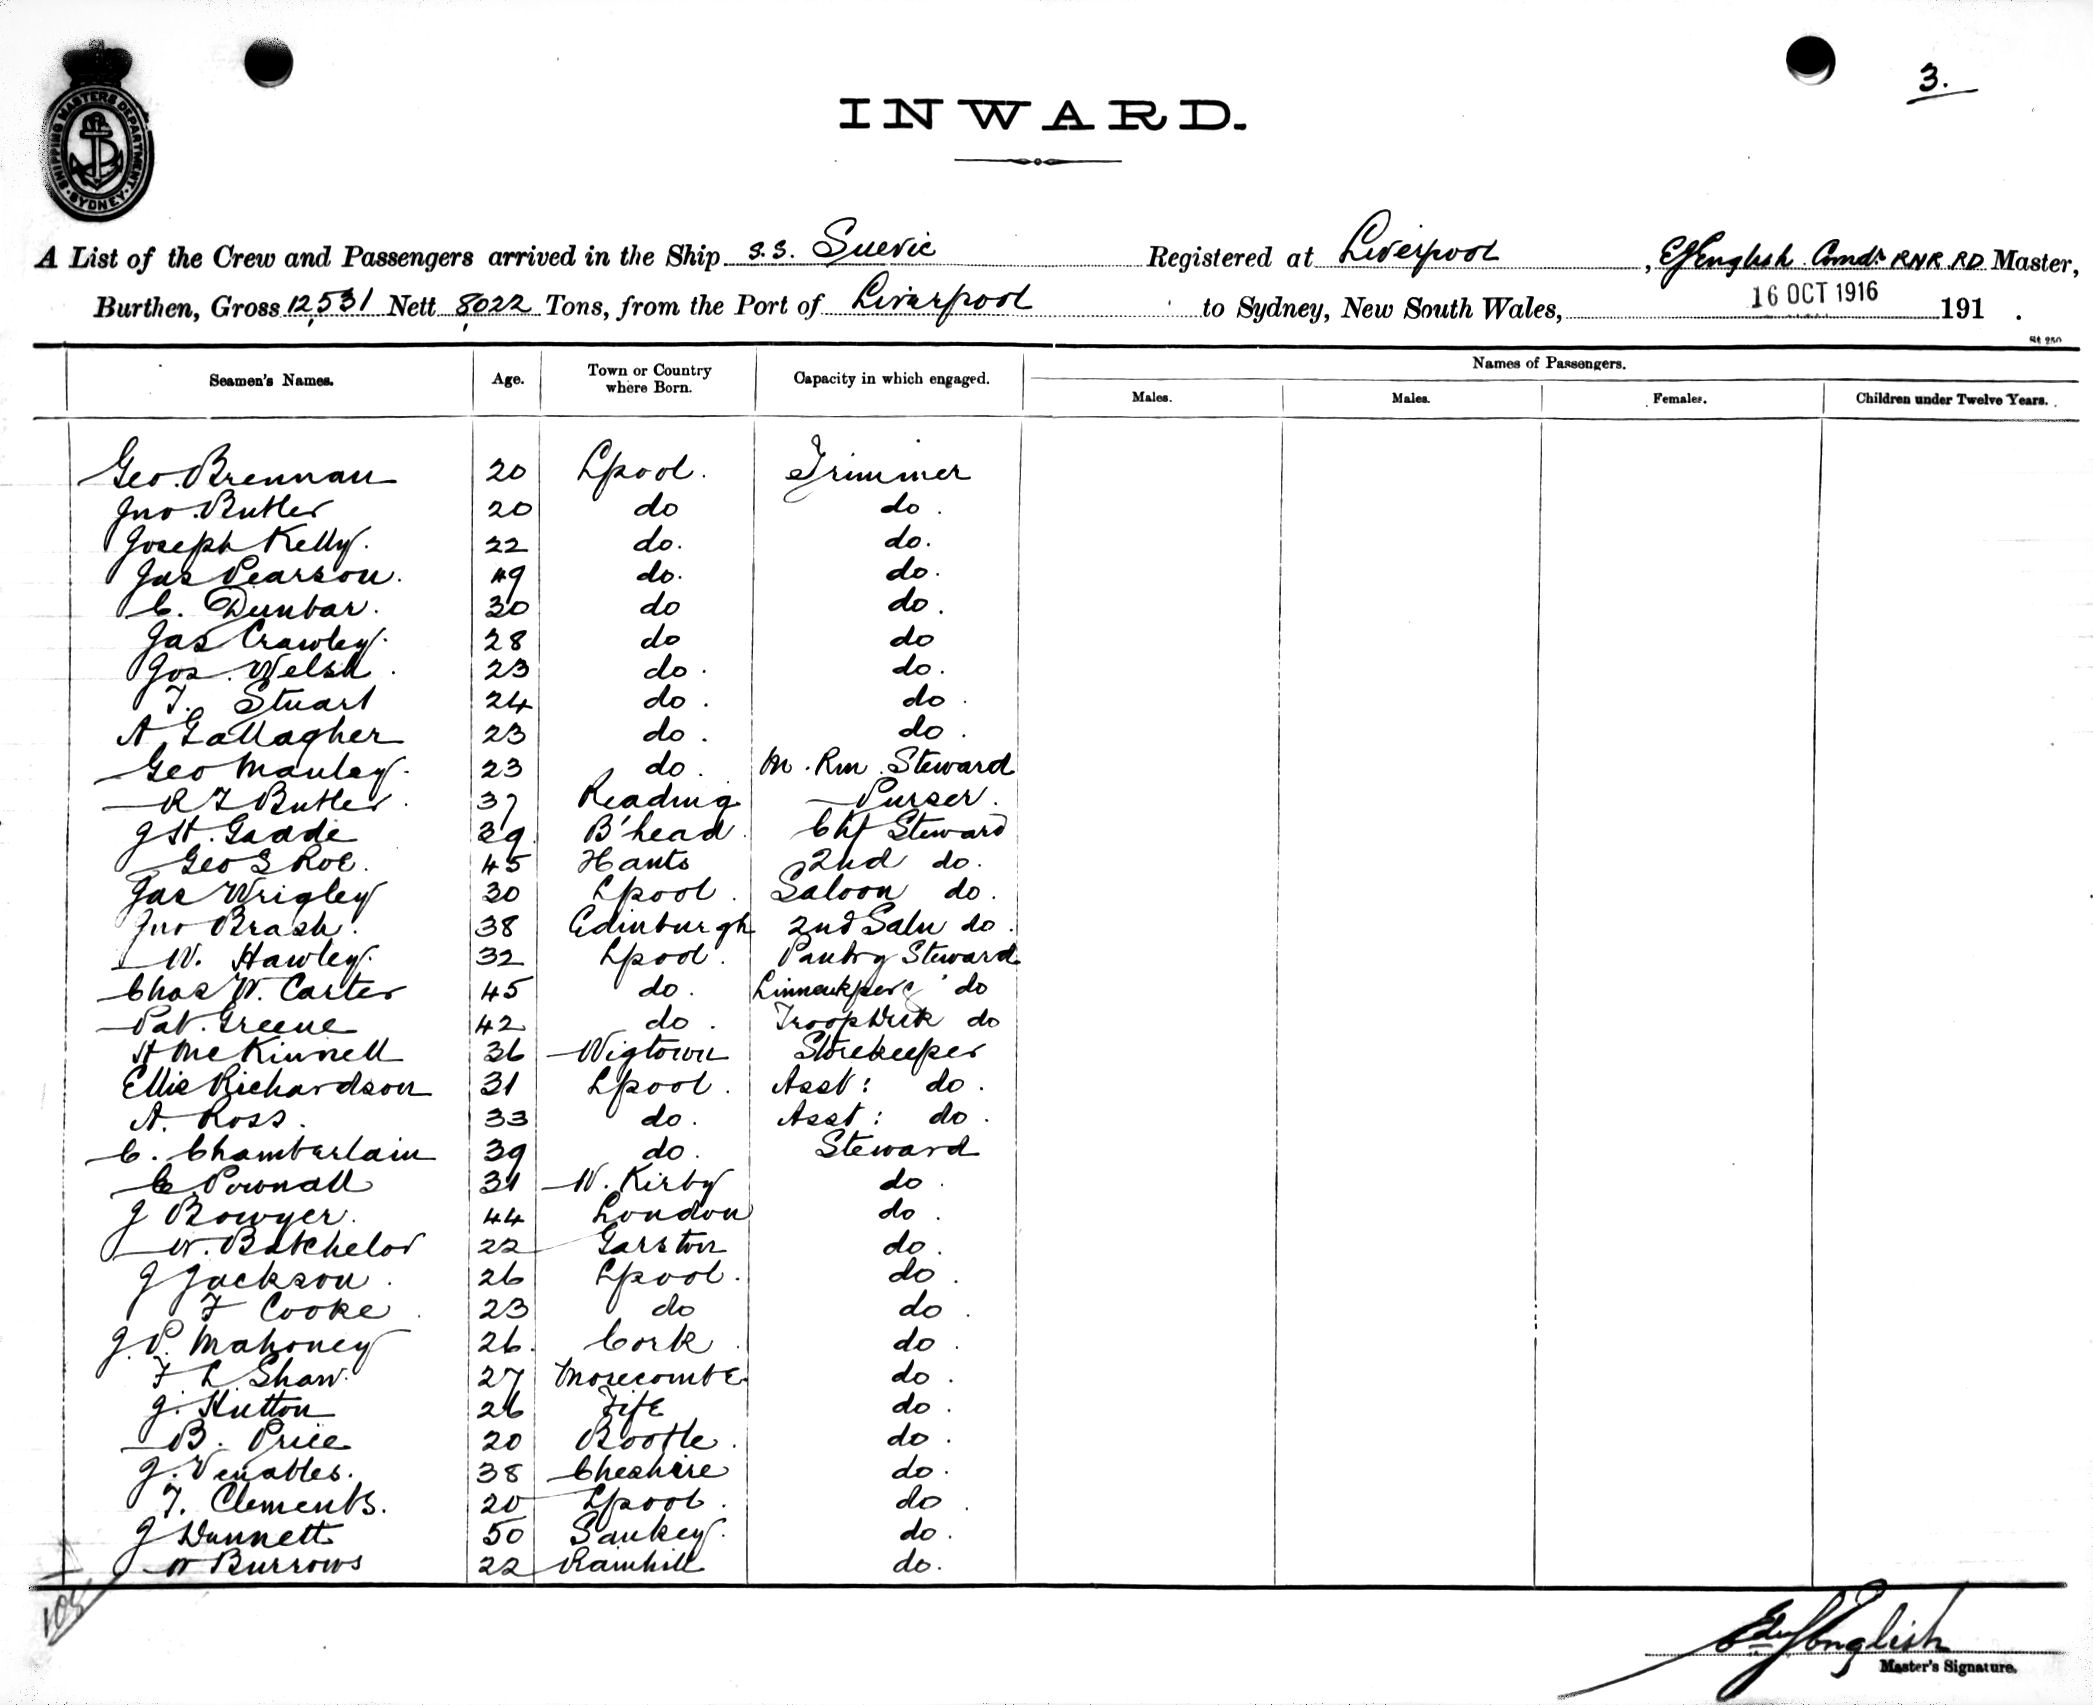 SHIPPING MASTERS DEPARTMENT. SYDNEY
3.
INWARD.
A List of the Crew and Passengers arrived in the Ship S.S. Suevic Registered at Liverpool, E J English Comdr RNR. RD Master,
Burthen, Gross 12,531 Nett 8022 Tons, from the Port of Liverpool to Sydney, New South Wales, 16 OCT 1916 191 .
Seamen's Names. Age. Town or Country where Born. Capacity in which engaged. Names of Passengers.
Males. Males. Females. Children under Twelve Years.
Geo. Brennan 20 Lpool. Trimmer
Jno. Butler 20 do do.
Joseph Kelly. 22 do. do.
Jas Pearson. 49 do. do.
C. Dunbar. 30 do do.
Jas Crawley. 28 do do
Jos. Welsh. 23 do. do.
T. Stuart 24 do. do.
A Gallagher 23 do. do.
Geo Manley. 23 do. M. Rm. Steward
R T Butler. 37 Reading Purser.
J St. 39 B'head. Chf Steward
Geo S Roe. 45 Hants 2nd do.
Jas Wrigley 30 Lpool. Saloon do.
Jno Brash. 38 Edinburgh 2nd Saln do.
W. Hawley. 32 Lpool. Pantry Steward
Chas W. Carter 45 do. Linnenkper do
Pat. Greene 42 do. Troop Deck do
H McKinnell 36 Wigtown Storekeeper
Ellis Richardson 31 Lpool. Asst: do.
A. Ross. 33 do. Asst: do.
C. Chamberlain 39 do. Steward
C Pownall 31 W. Kirby do.
J Bowyer. 44 London do.
W. Batchelor 22 Garston do.
J Jackson. 26 Lpool. do.
F Cooke. 23 do do.
J. P. Mahoney 26. Cork. do.
F L Shaw. 27 Morecombe do.
J. Hutton 26 Fife do.
B. Price 20 Bootle. do.
J. Venables. 38 Cheshire do.
T. Clements. 20 Lpool. do.
J Dunnett 50 Sankey. do.
W Burrows 22 Rainhill do.
Edw J English
Master's Signature.